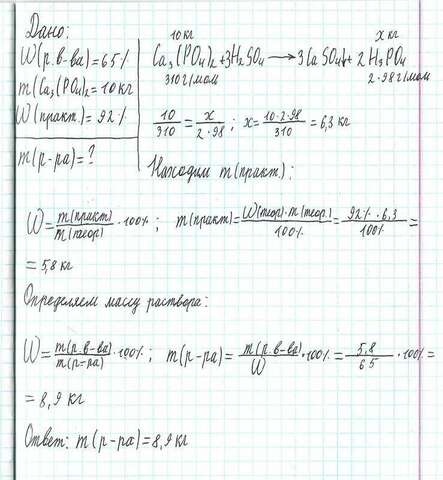 Дано:
W(р.в-ва)=65%
m(Ca₃(PO₄)₂=10 кг
W(практ.)=92%
m(р-ра)=?
10 кг x кг
Ca₃(PO₄)₂+3H₂SO₄→3CaSO₄+2H₃PO₄
310 г/мол 2·98 г/мол
10/310 = x/2·98 ; x= 10·2·98/310 = 6,3 кг
Находим m(практ.):
W= m(практ)/m(теор.) ·100% ; m(практ)= W(теор)·m(теор.)/100% = 92%·6,3/100% =
= 5,8 кг
Определяем массу раствора:
W= m(р.в-ва)/m(р-ра) ·100% ; m(р-ра)= m(р.в-ва)/W ·100%= 5,8/65 ·100%=
= 8,9 кг
Ответ: m(р-ра)=8,9 кг